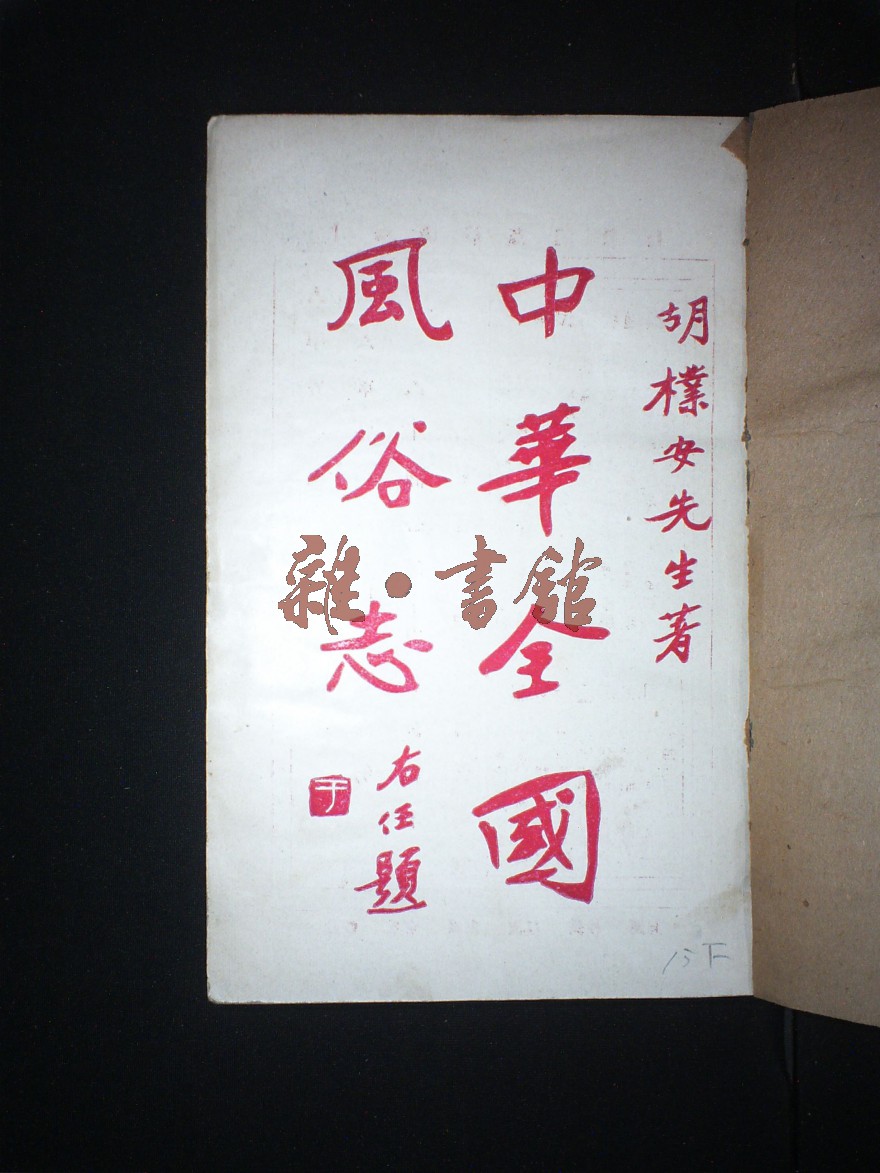 胡樸安先生著
中華全國
風俗志
右任題
于
雜·書館
15下